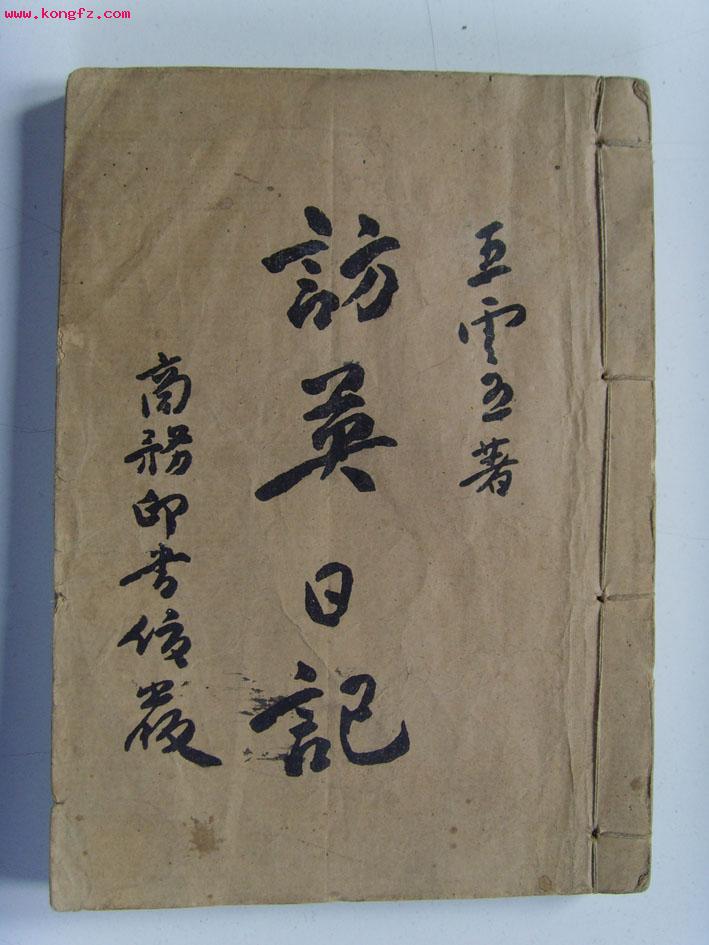 www.kongfz.com
王雲五著
訪英日記
商務印書館出版